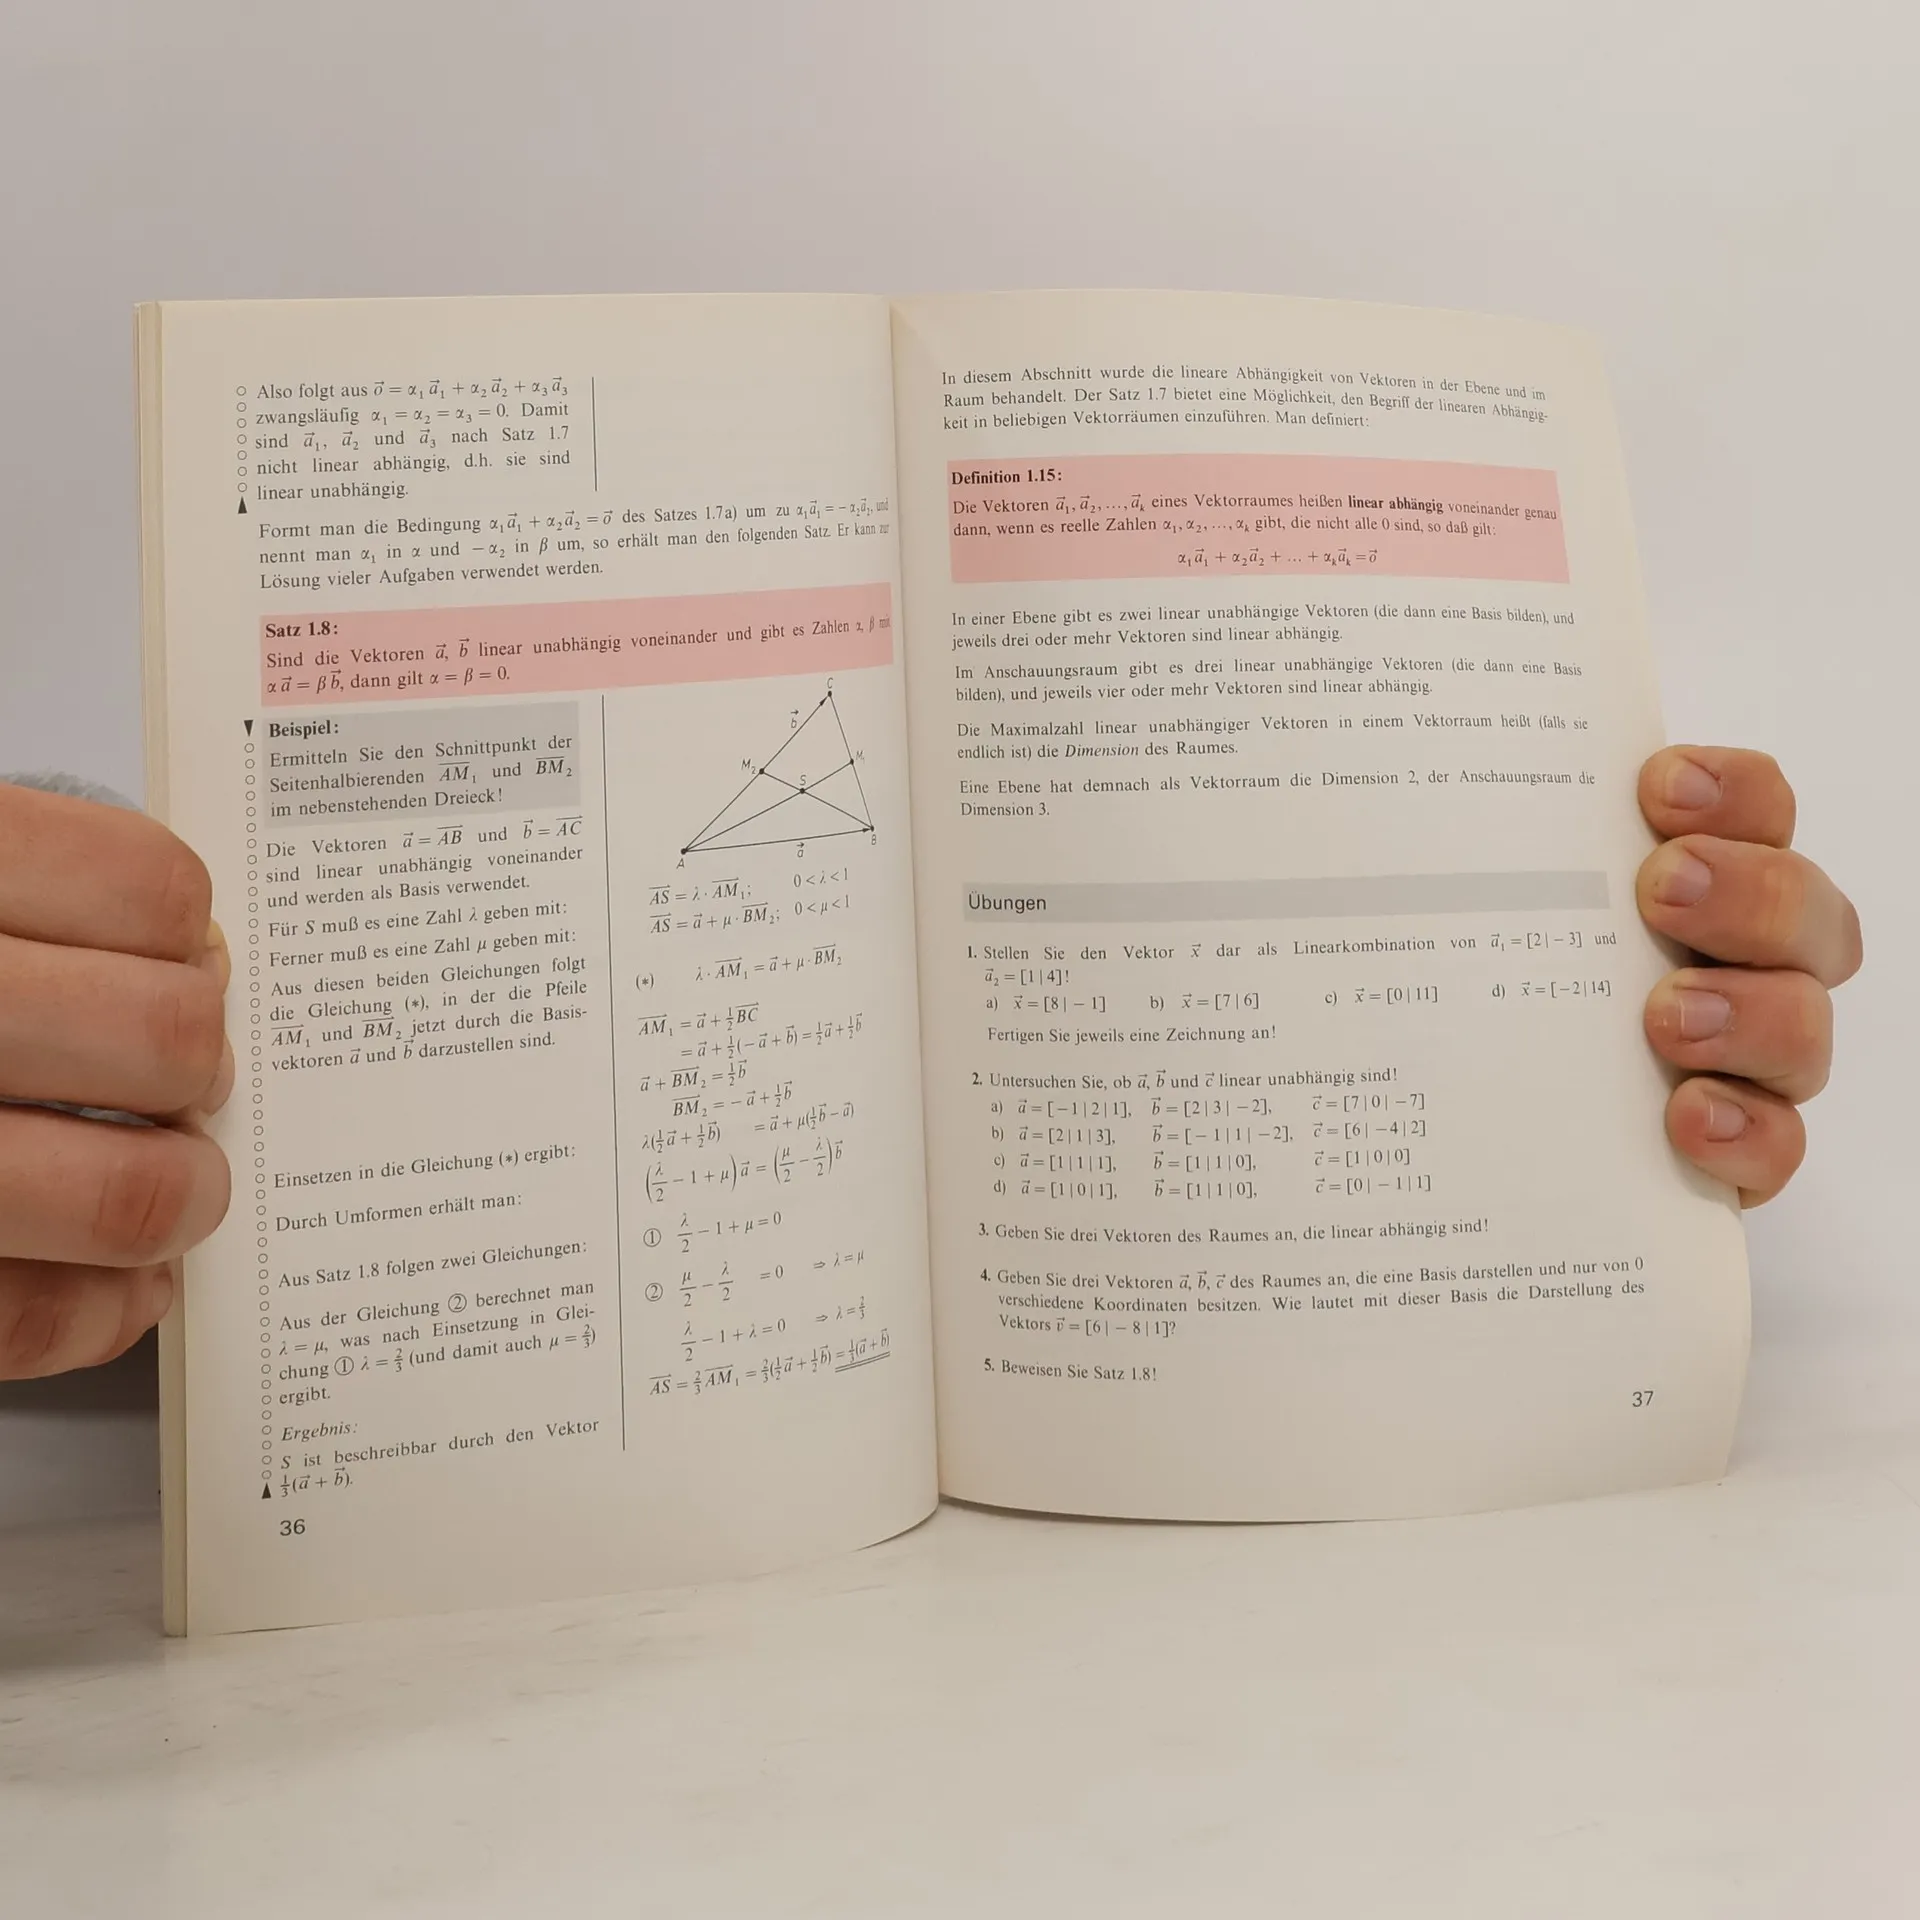 Also folgt aus o⃗ = α₁ a⃗₁ + α₂ a⃗₂ + α₃ a⃗₃
zwangsläufig α₁ = α₂ = α₃ = 0. Damit
sind a⃗₁, a⃗₂ und a⃗₃ nach Satz 1.7
nicht linear abhängig, d.h. sie sind
linear unabhängig.
Formt man die Bedingung α₁a⃗₁ + α₂a⃗₂ = o⃗ des Satzes 1.7a) um zu α₁a⃗₁ = − α₂a⃗₂, und
nennt man α₁ in α und − α₂ in β um, so erhält man den folgenden Satz. Er kann zur
Lösung vieler Aufgaben verwendet werden.
Satz 1.8:
Sind die Vektoren a⃗, b⃗ linear unabhängig voneinander und gibt es Zahlen α, β mit
α a⃗ = β b⃗, dann gilt α = β = 0.
Beispiel:
Ermitteln Sie den Schnittpunkt der
Seitenhalbierenden AM₁ und BM₂
im nebenstehenden Dreieck!
C
b⃗
M₂
M₁
S
A
a⃗
B
Die Vektoren a⃗ = AB und b⃗ = AC
sind linear unabhängig voneinander
und werden als Basis verwendet.
Für S muß es eine Zahl λ geben mit:
AS = λ · AM₁; 0 < λ < 1
Ferner muß es eine Zahl μ geben mit:
AS = a⃗ + μ · BM₂; 0 < μ < 1
Aus diesen beiden Gleichungen folgt
die Gleichung (∗), in der die Pfeile
AM₁ und BM₂ jetzt durch die Basis-
vektoren a⃗ und b⃗ darzustellen sind.
(∗) λ · AM₁ = a⃗ + μ · BM₂
AM₁ = a⃗ + ½BC
= a⃗ + ½(− a⃗ + b⃗) = ½a⃗ + ½b⃗
a⃗ + BM₂ = ½b⃗
BM₂ = − a⃗ + ½b⃗
Einsetzen in die Gleichung (∗) ergibt:
λ(½a⃗ + ½b⃗) = a⃗ + μ(½b⃗ − a⃗)
Durch Umformen erhält man:
(λ/2 − 1 + μ) a⃗ = (μ/2 − λ/2) b⃗
Aus Satz 1.8 folgen zwei Gleichungen:
① λ/2 − 1 + μ = 0
② μ/2 − λ/2 = 0 ⇒ λ = μ
Aus der Gleichung ② berechnet man
λ = μ, was nach Einsetzung in Glei-
chung ① λ = ⅔ (und damit auch μ = ⅔)
ergibt.
λ/2 − 1 + λ = 0 ⇒ λ = ⅔
AS = ⅔ AM₁ = ⅔(½a⃗ + ½b⃗) = ⅓(a⃗ + b⃗)
Ergebnis:
S ist beschreibbar durch den Vektor
⅓(a⃗ + b⃗).
36
In diesem Abschnitt wurde die lineare Abhängigkeit von Vektoren in der Ebene und im
Raum behandelt. Der Satz 1.7 bietet eine Möglichkeit, den Begriff der linearen Abhängig-
keit in beliebigen Vektorräumen einzuführen. Man definiert:
Definition 1.15:
Die Vektoren a⃗₁, a⃗₂, ..., a⃗ₖ eines Vektorraumes heißen linear abhängig voneinander genau
dann, wenn es reelle Zahlen α₁, α₂, ..., αₖ gibt, die nicht alle 0 sind, so daß gilt:
α₁a⃗₁ + α₂a⃗₂ + ... + αₖa⃗ₖ = o⃗
In einer Ebene gibt es zwei linear unabhängige Vektoren (die dann eine Basis bilden), und
jeweils drei oder mehr Vektoren sind linear abhängig.
Im Anschauungsraum gibt es drei linear unabhängige Vektoren (die dann eine Basis
bilden), und jeweils vier oder mehr Vektoren sind linear abhängig.
Die Maximalzahl linear unabhängiger Vektoren in einem Vektorraum heißt (falls sie
endlich ist) die Dimension des Raumes.
Eine Ebene hat demnach als Vektorraum die Dimension 2, der Anschauungsraum die
Dimension 3.
Übungen
1. Stellen Sie den Vektor x⃗ dar als Linearkombination von a⃗₁ = [2 | − 3] und
a⃗₂ = [1 | 4]!
a) x⃗ = [8 | − 1] b) x⃗ = [7 | 6] c) x⃗ = [0 | 11] d) x⃗ = [−2 | 14]
Fertigen Sie jeweils eine Zeichnung an!
2. Untersuchen Sie, ob a⃗, b⃗ und c⃗ linear unabhängig sind!
a) a⃗ = [−1 | 2 | 1], b⃗ = [2 | 3 | −2], c⃗ = [7 | 0 | −7]
b) a⃗ = [2 | 1 | 3], b⃗ = [− 1 | 1 | −2], c⃗ = [6 | −4 | 2]
c) a⃗ = [1 | 1 | 1], b⃗ = [1 | 1 | 0], c⃗ = [1 | 0 | 0]
d) a⃗ = [1 | 0 | 1], b⃗ = [1 | 1 | 0], c⃗ = [0 | − 1 | 1]
3. Geben Sie drei Vektoren des Raumes an, die linear abhängig sind!
4. Geben Sie drei Vektoren a⃗, b⃗, c⃗ des Raumes an, die eine Basis darstellen und nur von 0
verschiedene Koordinaten besitzen. Wie lautet mit dieser Basis die Darstellung des
Vektors v⃗ = [6 | − 8 | 1]?
5. Beweisen Sie Satz 1.8!
37